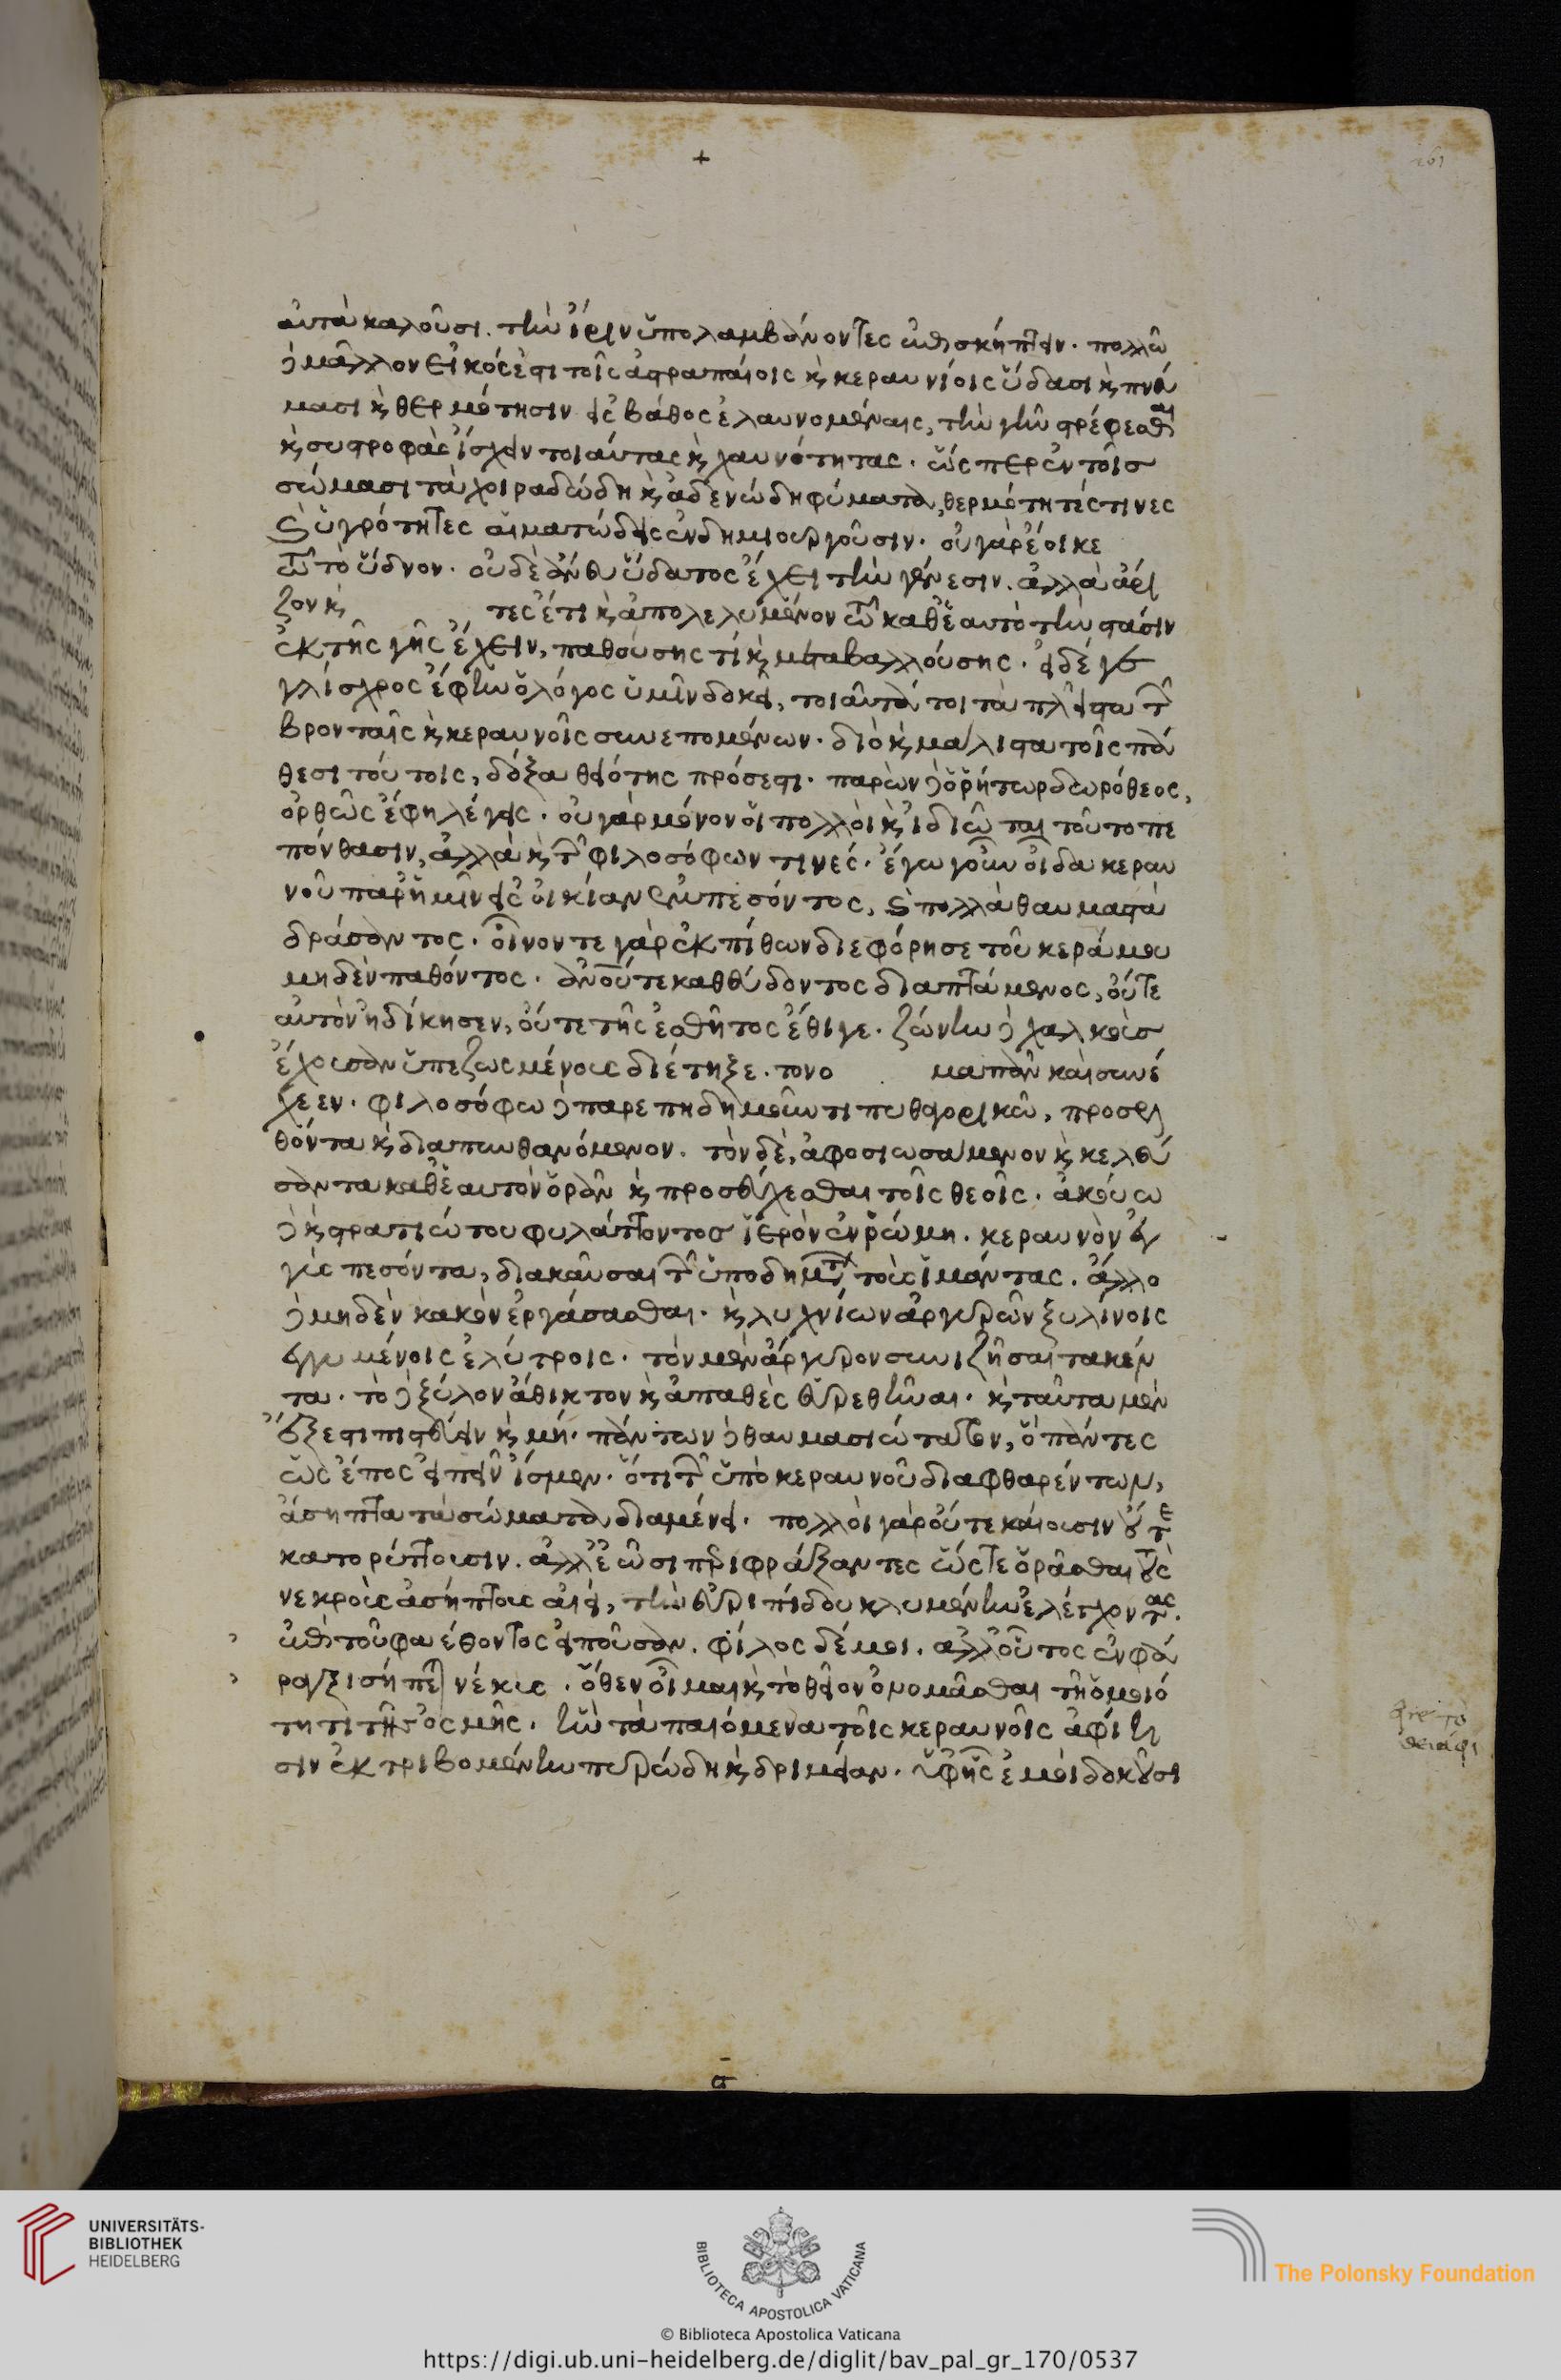 αὐτὰ καλοῦσι. τὴν ἶριν ὑπολαμβάνοντες ἐπισκήπτειν. πολλῶ
δὲ μᾶλλον εἰκός ἐστι τοῖς ἀστραπαίοις ϗ κεραυνίοις ὕδασι ϗ πνεύ
μασι ϗ θερμότησιν εἰς βάθος ἐλαυνομέναις, τὴν γῆν στρέφεσθαι
ϗ συστροφὰς ἴσχειν τοιαύτας ϗ χαυνότητας. ὥσπερ ἐν τοῖσ
σώμασι τὰ χοιραδώδη ϗ ἀδενώδη φύματα, θερμότητές τινες
ϗ ὑγρότητες αἱματώδεις ἐνδημιουργοῦσιν. οὐ γὰρ ἔοικε
τῶ τὸ ὕδνον. οὐδὲ ἄνευ ὕδατος ἔχει τὴν γένεσιν. ἀλλὰ ἄρι
ζον ϗ τες ἔτι ϗ ἀπολελυμένον τῶ καθ' ἑαυτὸ τὴν στάσιν
ἐκ τῆς γῆς ἔχειν, παθούσης τί ϗ μεταβαλλούσης. εἰ δέ γε
γλίσχρος ἔφην ὁ λόγος ὑμῖν δοκεῖ, τοιαῦτά τοι τὰ πλεῖστα τῶν
βρονταῖς ϗ κεραυνοῖς συνεπομένων. διὸ ϗ μάλιστα τοῖς πά
θεσι τούτοις, δόξα θειότης πρόσεστι. παρὼν δὲ ὁ ῥήτωρ δωρόθεος,
ὀρθῶς ἔφη λέγεις. οὐ γὰρ μόνον οἱ πολλοὶ ϗ ἰδιῶται τοῦτο πε
πόνθασιν, ἀλλὰ ϗ τῶν φιλοσόφων τινές. ἔγω γοῦν οἶδα κεραυ
νοῦ παρ' ἡμῖν εἰς οἰκίαν ἐμπεσόντος, ϗ πολλὰ θαυμαστὰ
δράσαντος. οἶνον τε γὰρ ἐκ πίθων διεφόρησε τοῦ κεράμου
μηδὲν παθόντος. ἀνοῦ τε καθεύδοντος διαπτάμενος, οὔτε
αὐτὸν ἠδίκησεν, οὔτε τῆς ἐσθῆτος ἔθιγε. ζώνην δὲ χαλκοῦσ
ἔχουσαν ὑπεζωσμένους διέτηξε. τονο μαπᾶν καὶ συνέ
χεεν. φιλοσόφω δὲ παρεπηδημοῦντι πυθαγορικῶ, προσελ
θόντα ϗ διαπυνθανόμενον. τὸν δὲ, ἀφοσιωσάμενον ϗ κελεύ
σαντα καθ' ἑαυτὸν ὁρᾶν ϗ προσεύχεσθαι τοῖς θεοῖς. ἀκούω
δὲ ϗ στρατιώτου φυλάττοντοσ ἱερὸν ἐν ῥώμη. κεραυνὸν ἐγ
γὺς πεσόντα, διακαῦσαι τῶν ὑποδημάτων τοὺς ἱμάντας. ἄλλο
δὲ μηδὲν κακὸν ἐργάσασθαι. ϗ λυχνίων ἀργυρῶν ξυλίνοις
ἐγκειμένοις ἐλύτροις. τὸν μὲν ἄργυρον συνιζῆσαι τακέν
τα. τὸ δὲ ξύλον ἄθικτον ϗ ἀπαθὲς εὑρεθῆναι. ϗ ταῦτα μὲν
ἔξεστι πιστεύειν ϗ μή. πάντων δὲ θαυμασιώτατον, ὃ πάντες
ὡς ἔπος εἰπεῖν ἴσμεν. ὅτι τῶν ὑπὸ κεραυνοῦ διαφθαρέντων,
ἄσηπτα τὰ σώματα διαμένει. πολλοὶ γὰρ οὔτε κάιουσιν οὔτε
κατορύττουσιν. ἀλλ' ἐῶσι περιφράξαντες ὥστε ὁρᾶσθαι τοὺς
νεκροὺς ἀσήπτους αἰεί, τὴν εὐριπίδου κλυμένην ἐλέγχοντας.
ἐπὶ τοῦ φαέθοντος εἰποῦσαν. φίλος δέ μοι. ἀλλ' οὗτος ἐν φά
ραγξι σήπεται νέκυς. ὅθεν οἶμαι ϗ τὸ θεῖον ὀνομᾶσθαι τῆ ὁμοιό
τητι τῆς ὀσμῆς. ἣν τὰ παιόμενα τοῖς κεραυνοῖς ἀφίη
σιν ἐκτριβομένην πυρώδη ϗ δριμεῖαν. ὑφ' ἧς ἐμοὶ δοκοῦσι
UNIVERSITÄTS-
BIBLIOTHEK
HEIDELBERG
BIBLIOTECA APOSTOLICA VATICANA
The Polonsky Foundation
© Biblioteca Apostolica Vaticana
https://digi.ub.uni-heidelberg.de/diglit/bav_pal_gr_170/0537